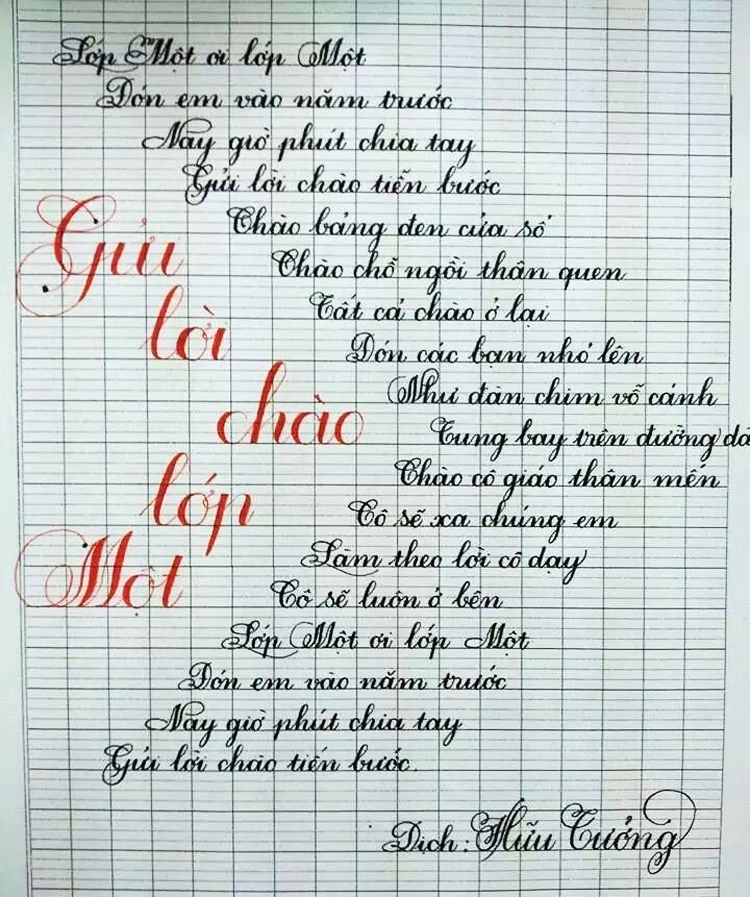 Lớp Một ơi lớp Một
Đón em vào năm trước
Nay giờ phút chia tay
Gửi lời chào tiến bước
Chào bảng đen cửa sổ
Chào chỗ ngồi thân quen
Tất cả chào ở lại
Đón các bạn nhỏ lên
Như đàn chim vỗ cánh
Tung bay trên đường
Chào cô giáo thân mến
Cô sẽ xa chúng em
Làm theo lời cô dạy
Cô sẽ luôn ở bên
Lớp Một ơi lớp Một
Đón em vào năm trước
Nay giờ phút chia tay
Gửi lời chào tiến bước.
Dịch: Hữu Tưởng
Gửi
lời
chào
lớp
Một